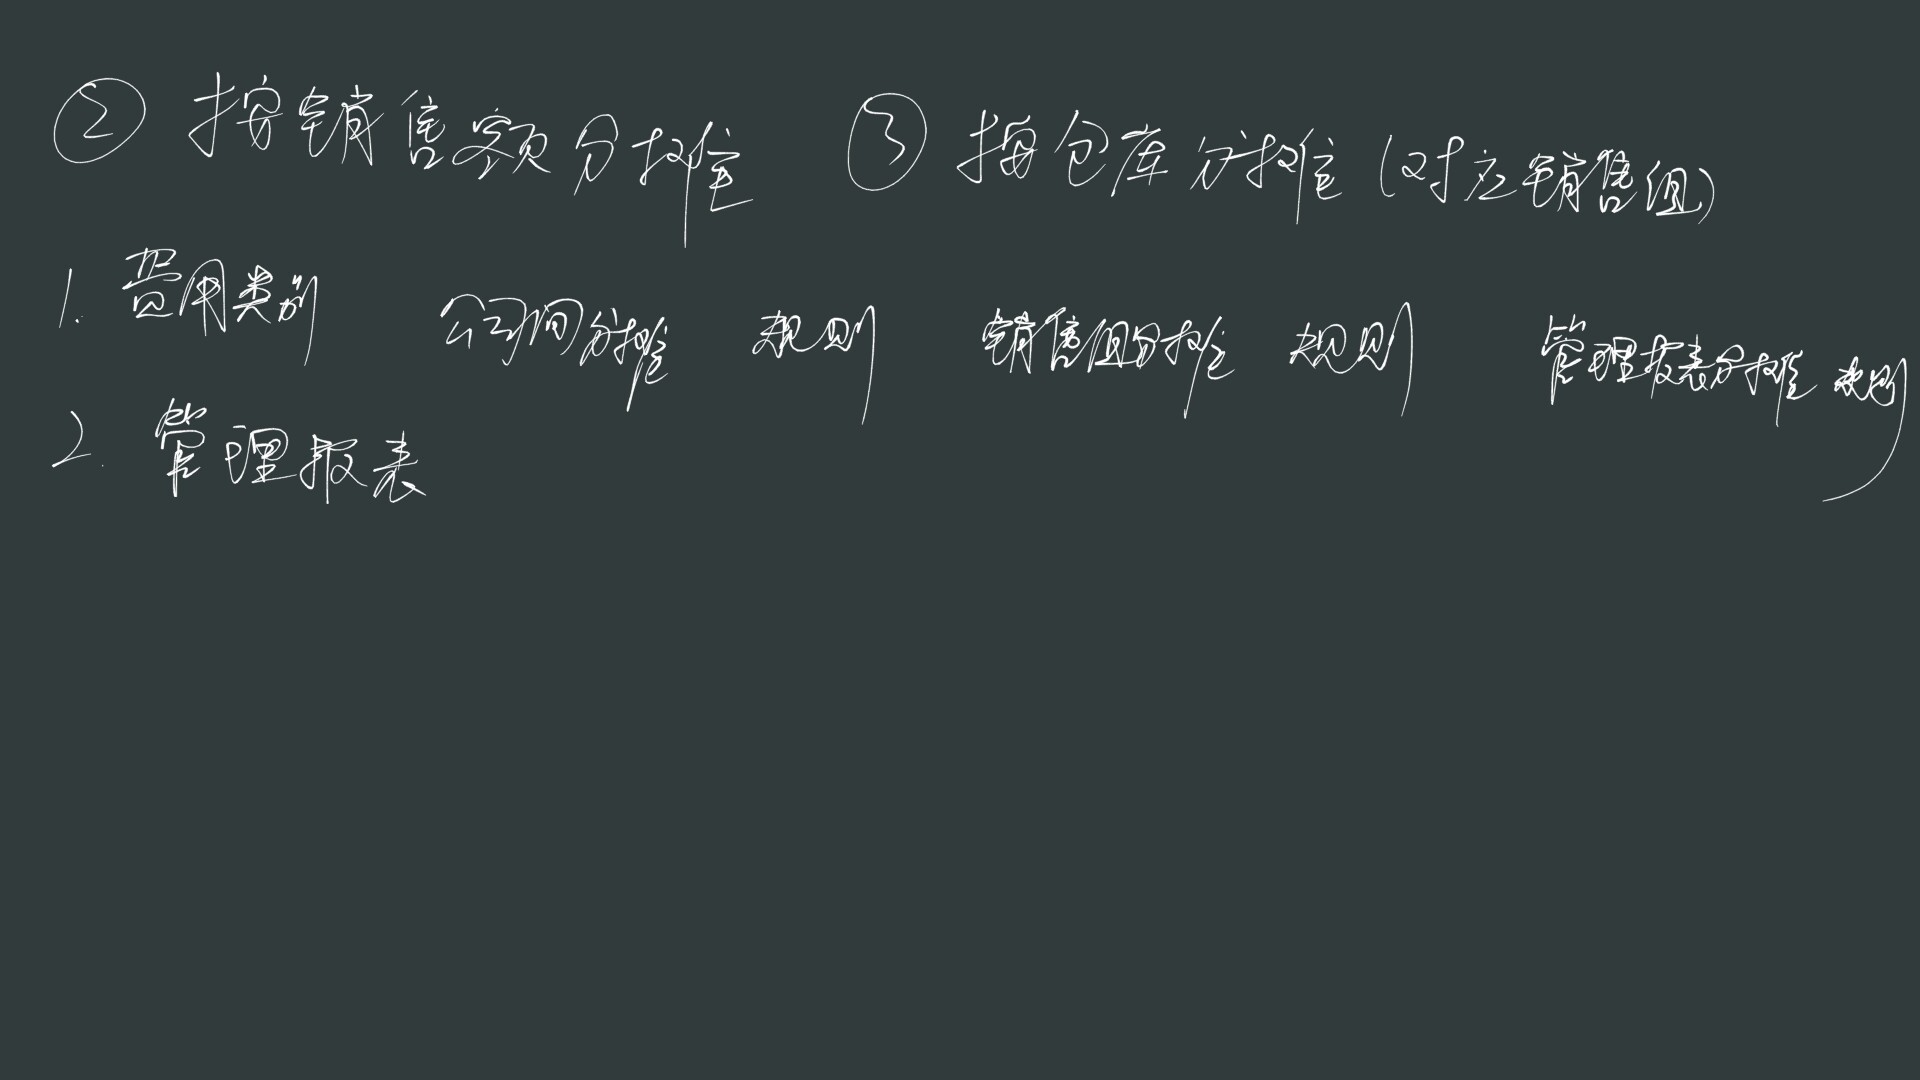 ② 按销售额分摊 ③ 按仓库分摊(对应销售组)
1. 费用类别 公司间分摊 规则 销售组分摊 规则 管理报表分摊 规则
2. 管理报表